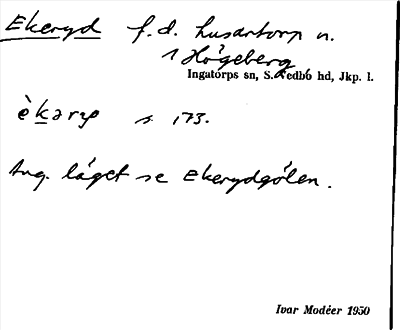 Ekeryd f.d. husartorp n.
1 Högeberg
Ingatorps sn, S. Vedbo hd, Jkp. l.
s. 173.
Ang. läget se Ekerydgölen.
Ivar Modéer 1950